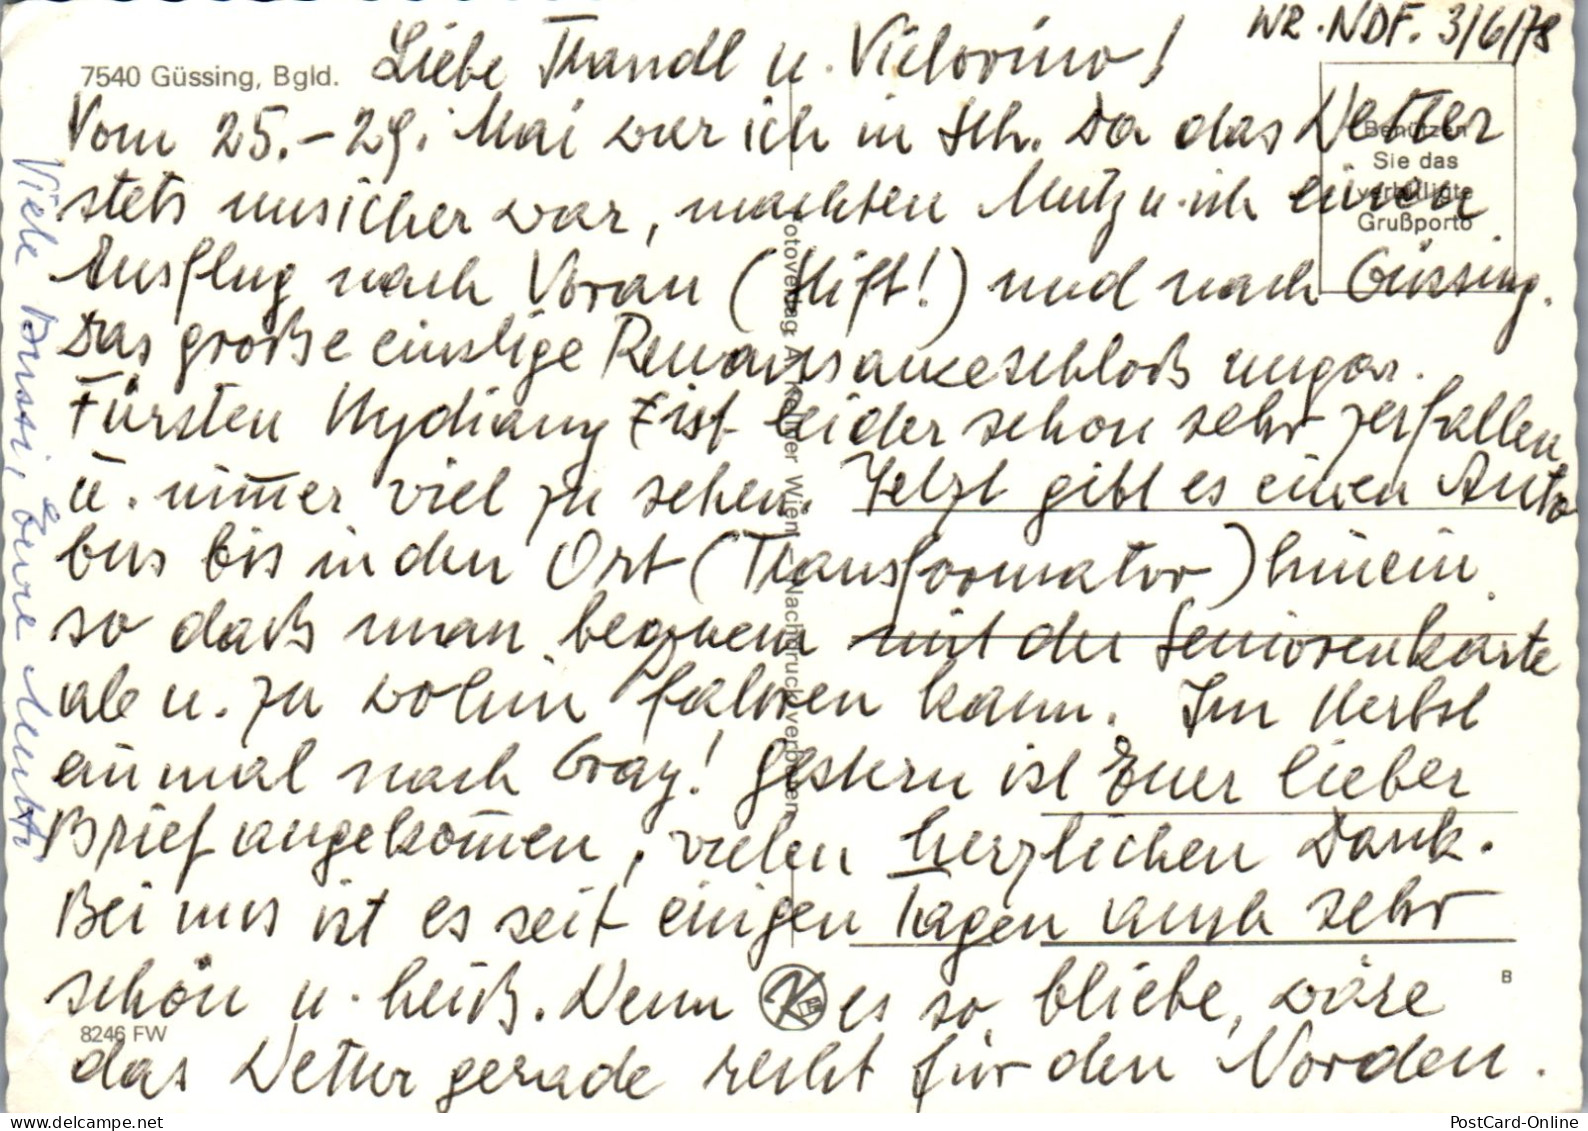 WR. NDF. 3/6/78
7540 Güssing, Bgld.
Liebe Thandl u. Viktorino!
Benützen
Sie das
verbilligte
Grußporto
Vom 25.-29. Mai war ich in Sch. Da das Wetter
stets unsicher war, machten Mutz u. ich einen
Ausflug nach Vorau (Stift!) und nach Güssing.
Das große einstige Renaissanceschloß ungar.
Fürsten ist leider schon sehr zerfallen
u. nim̅er viel zu sehen. Jetzt gibt es einen Auto
bus bis in den Ort (Transformator) hinein
so daß man bequem mit der Seniorenkarte
ab u. zu wohin fahren kann. Im Herbst
einmal nach Graz! Gestern ist Euer lieber
Brief angekom̅en, vielen herzlichen Dank.
Bei uns ist es seit einigen Tagen auch sehr
schön u. heiß. Wenn es so bliebe, wäre
das Wetter gerade recht für den Norden.
Viele Bussi, Eure
Fotoverlag A. Kellner Wien - Nachdruck verboten
8246 FW
B
K
PostCard-Online